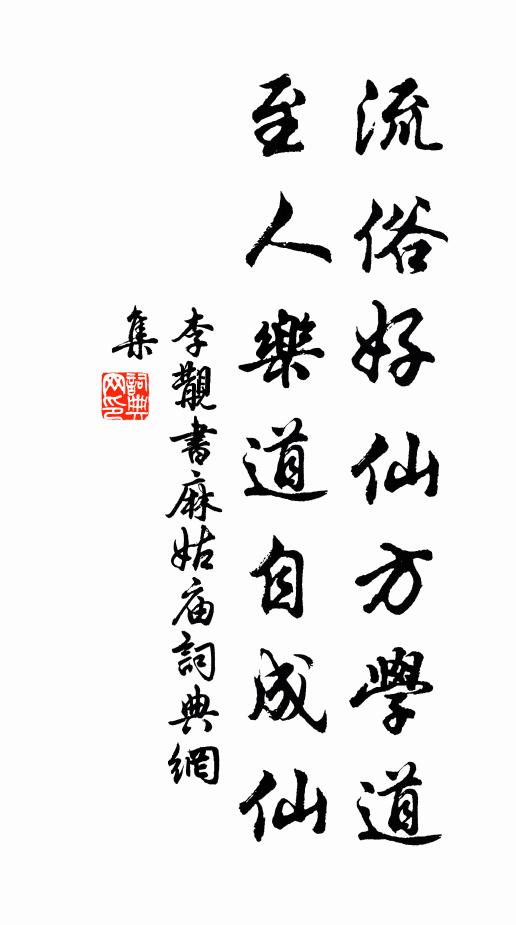 流俗好仙方學道
至人樂道自成仙
李覯書麻姑庙詞典網
集
詞典
网印